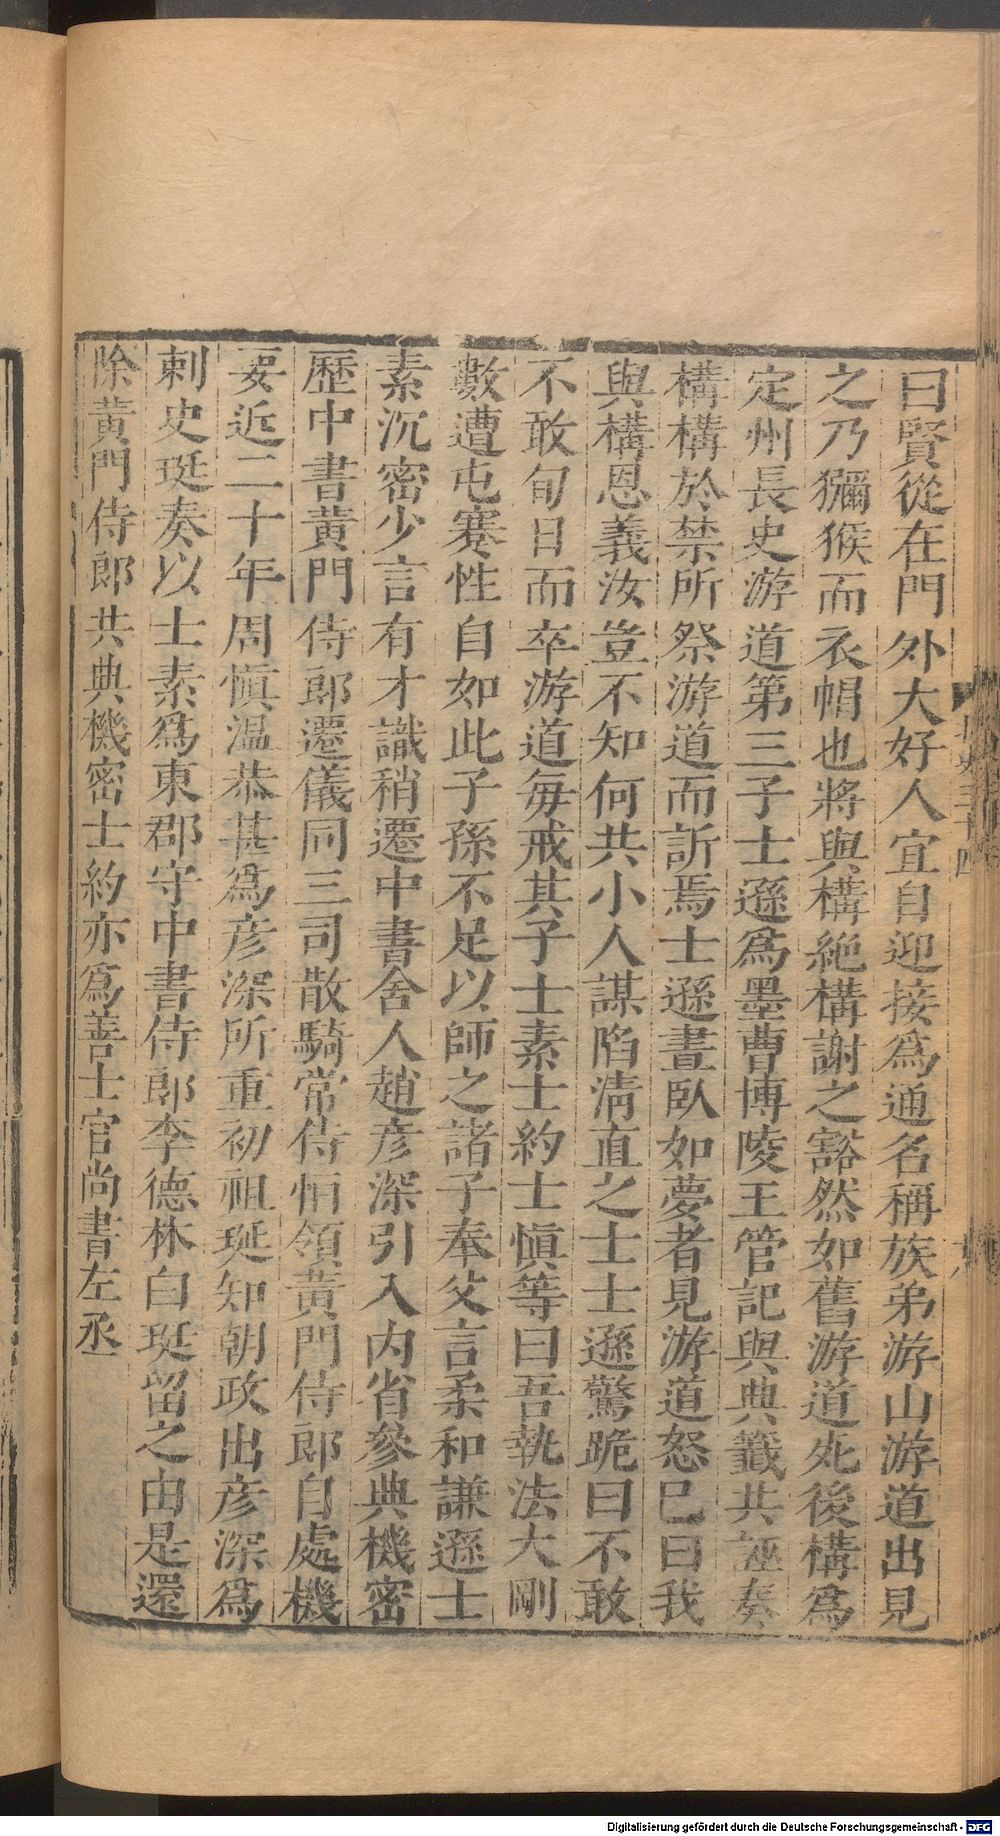 曰賢從在門外大好人宜自迎接爲通名稱族弟游山游道出見
之乃獼猴而衣帽也將與構絶構謝之豁然如舊游道死後構爲
定州長史游道第三子士遜爲墨曹博陵王管記與典籤共誣奏
構構於禁所祭游道而訴焉士遜晝臥如夢者見游道怒巳曰我
與構恩義汝豈不知何共小人謀陷淸直之士士遜驚跪曰不敢
不敢旬日而卒游道每戒其子士素士約士愼等曰吾執法大剛
數遭屯蹇性自如此子孫不足以師之諸子奉父言柔和謙遜士
素沉密少言有才識稍遷中書舍人趙彦深引入内省參典機密
歷中書黃門侍郎遷儀同三司散騎常侍恒領黃門侍郎自處機
要近二十年周愼温恭甚爲彦深所重初祖珽知朝政出彦深爲
刺史珽奏以士素爲東郡守中書侍郎李德林白珽留之由是還
除黃門侍郎共典機密士約亦爲善士官尚書左丞
Digitalisierung gefördert durch die Deutsche Forschungsgemeinschaft - DFG